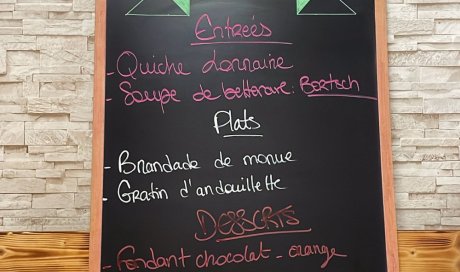 Entreés
- Quiche Lorraine
- Soupe de betterave : Bortsch
Plats
- Brandade de morue
- Gratin d'andouillette
DESSERTS
- Fondant chocolat - orange